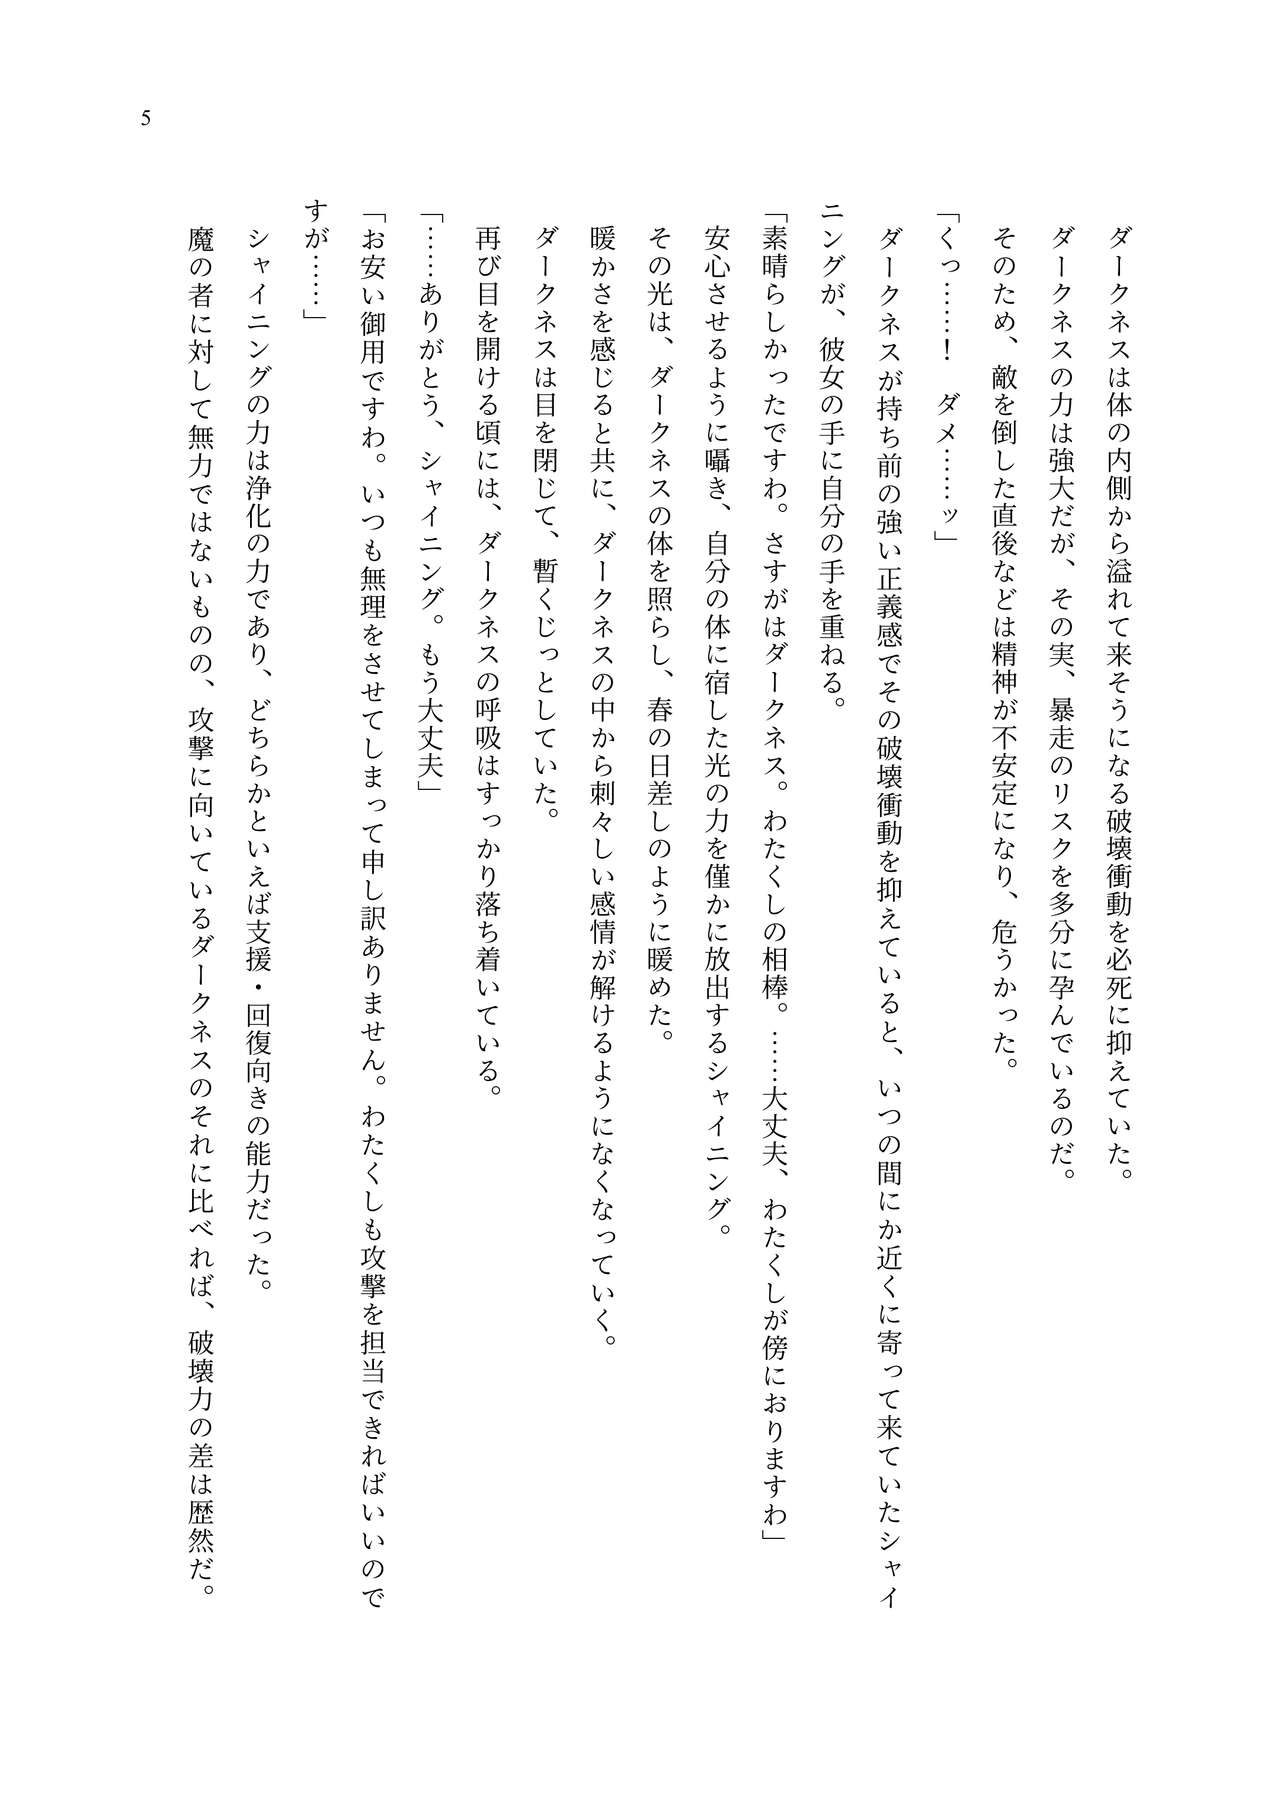 5
ダークネスは体の内側から溢れて来そうになる破壊衝動を必死に抑えていた。
ダークネスの力は強大だが、その実、暴走のリスクを多分に孕んでいるのだ。
そのため、敵を倒した直後などは精神が不安定になり、危うかった。
「くっ……！　ダメ……ッ」
ダークネスが持ち前の強い正義感でその破壊衝動を抑えていると、いつの間にか近くに寄って来ていたシャイ
ニングが、彼女の手に自分の手を重ねる。
「素晴らしかったですわ。さすがはダークネス。わたくしの相棒。……大丈夫、わたくしが傍におりますわ」
安心させるように囁き、自分の体に宿した光の力を僅かに放出するシャイニング。
その光は、ダークネスの体を照らし、春の日差しのように暖めた。
暖かさを感じると共に、ダークネスの中から刺々しい感情が解けるようになくなっていく。
ダークネスは目を閉じて、暫くじっとしていた。
再び目を開ける頃には、ダークネスの呼吸はすっかり落ち着いている。
「……ありがとう、シャイニング。もう大丈夫」
「お安い御用ですわ。いつも無理をさせてしまって申し訳ありません。わたくしも攻撃を担当できればいいので
すが……」
シャイニングの力は浄化の力であり、どちらかといえば支援・回復向きの能力だった。
魔の者に対して無力ではないものの、攻撃に向いているダークネスのそれに比べれば、破壊力の差は歴然だ。